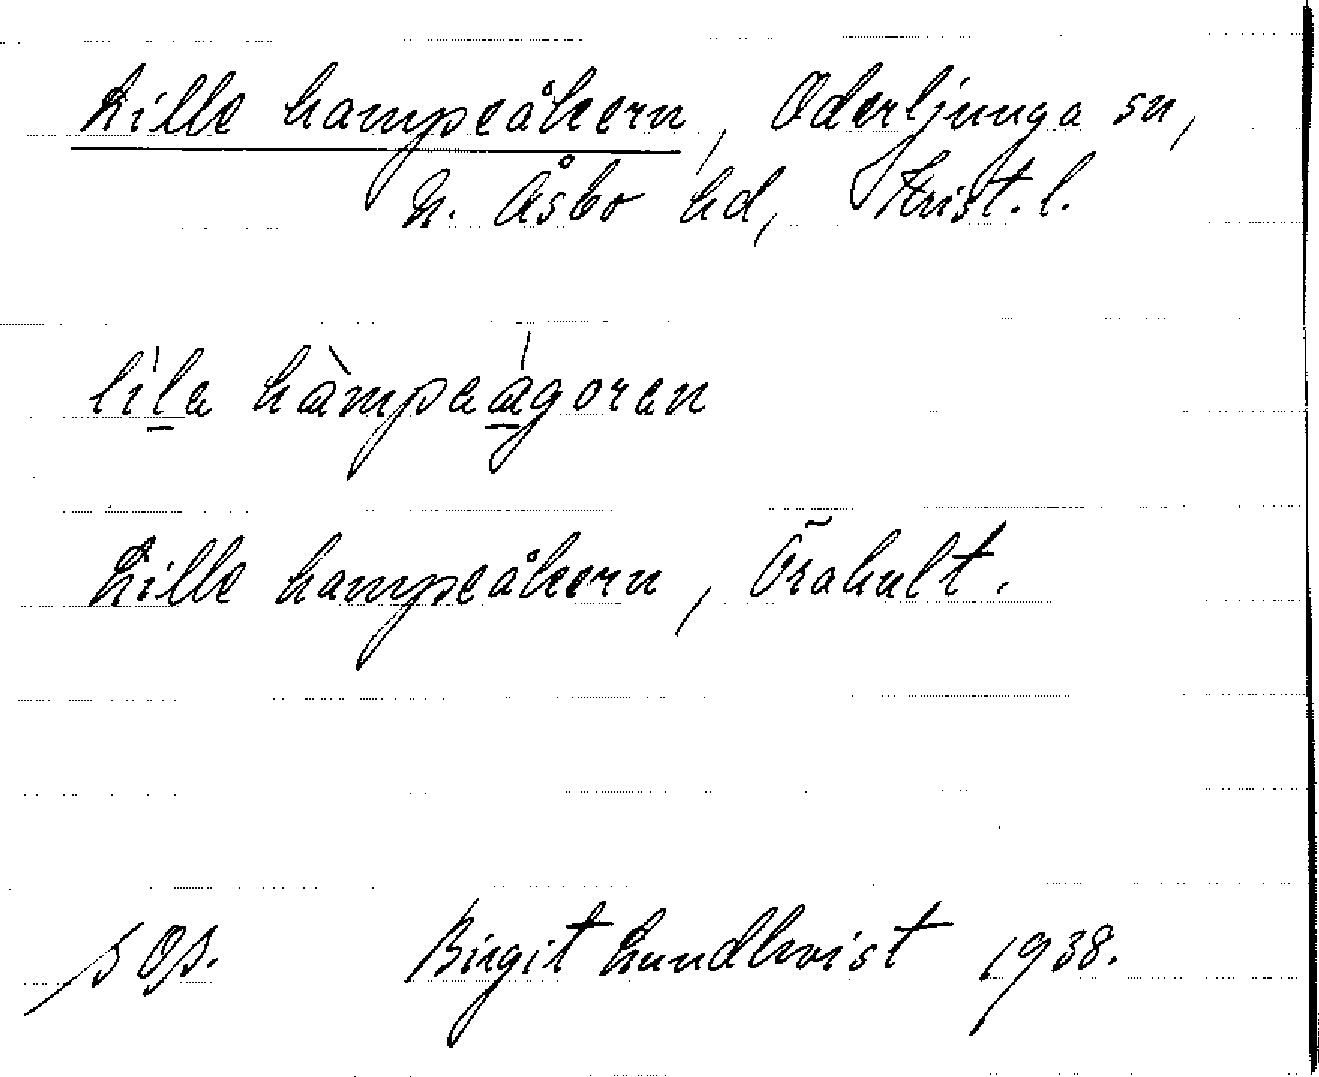 Lille hampeåkern, Oderljunga sn,
N. Åsbo hd, Krist. l.
lìla hàmpaàgoran
Lille hampeåkern, Örahult.
Birgit Lundkvist 1938.